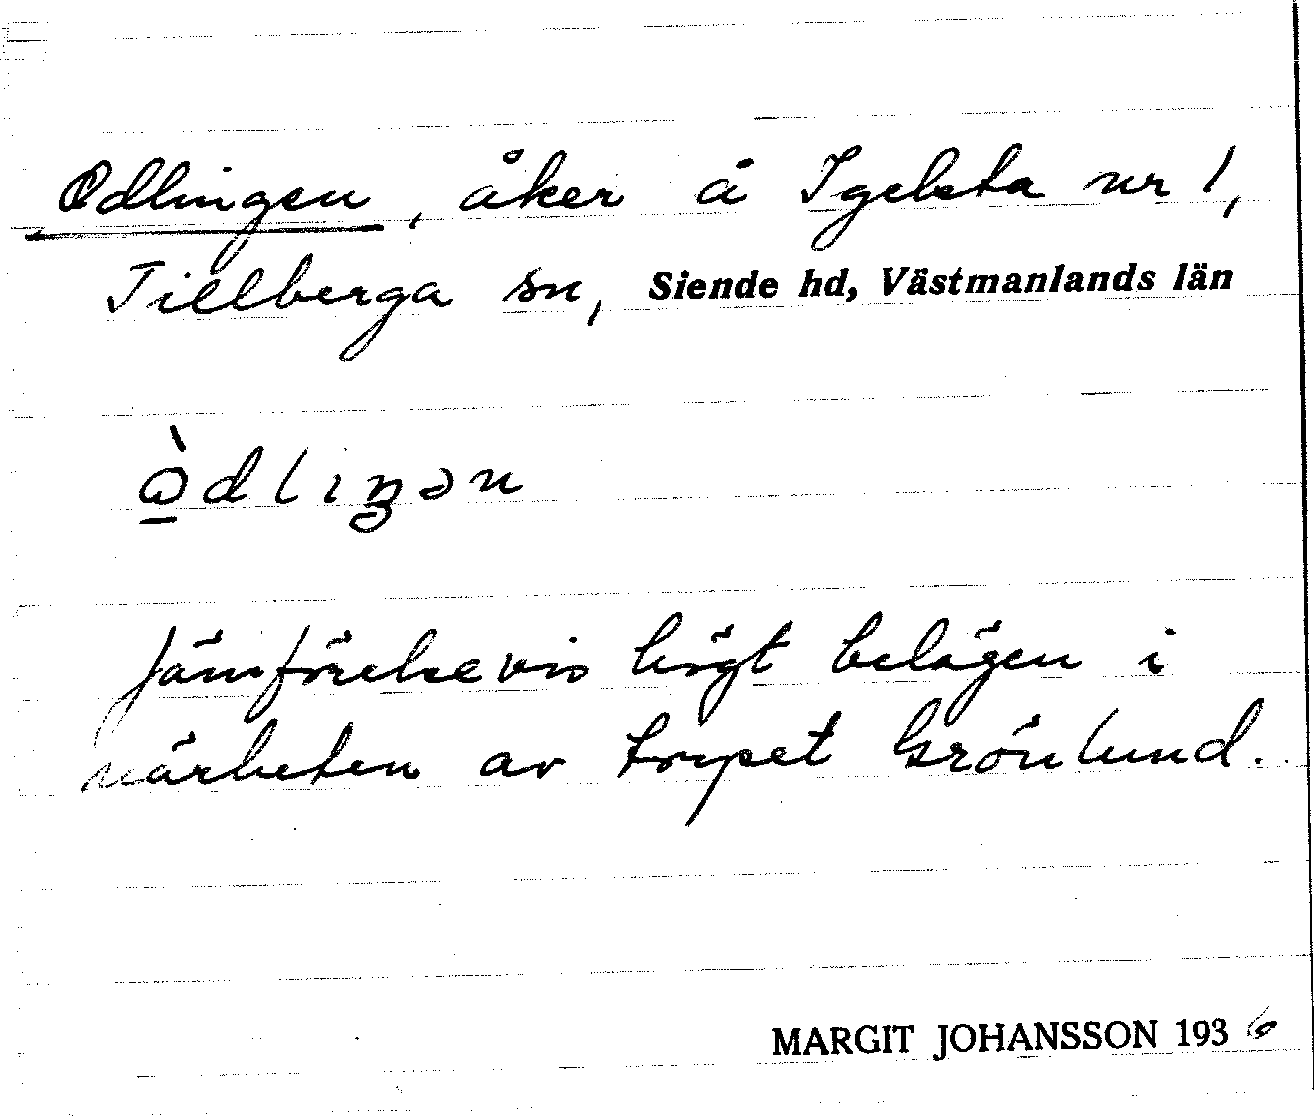 Odlingen, åker å Igelsta nr 1,
Tillberga sn, Siende hd, Västmanlands län
Jämförelsevis högt belägen i
närheten av torpet Grönlund.
MARGIT JOHANSSON 1936